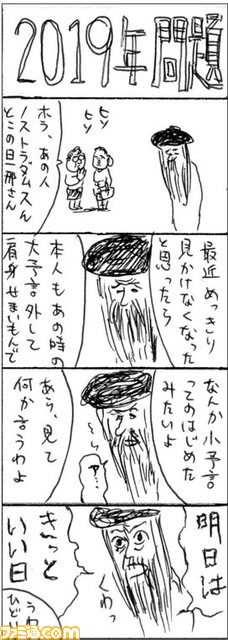 2019年問題
ヒソ
ヒソ
ホラ、あの人
ノストラダムスん
とこの旦那さん
最近めっきり
見かけなくなった
と思ったら
本人もあの時の
大予言外して
肩身せまいもんで
なんか小予言
ってのはじめた
みたいよ
あら、見て
何か言うわよ
明日は
くわっ
きっと
いい日
うわ
ひどい
ファミ通.com